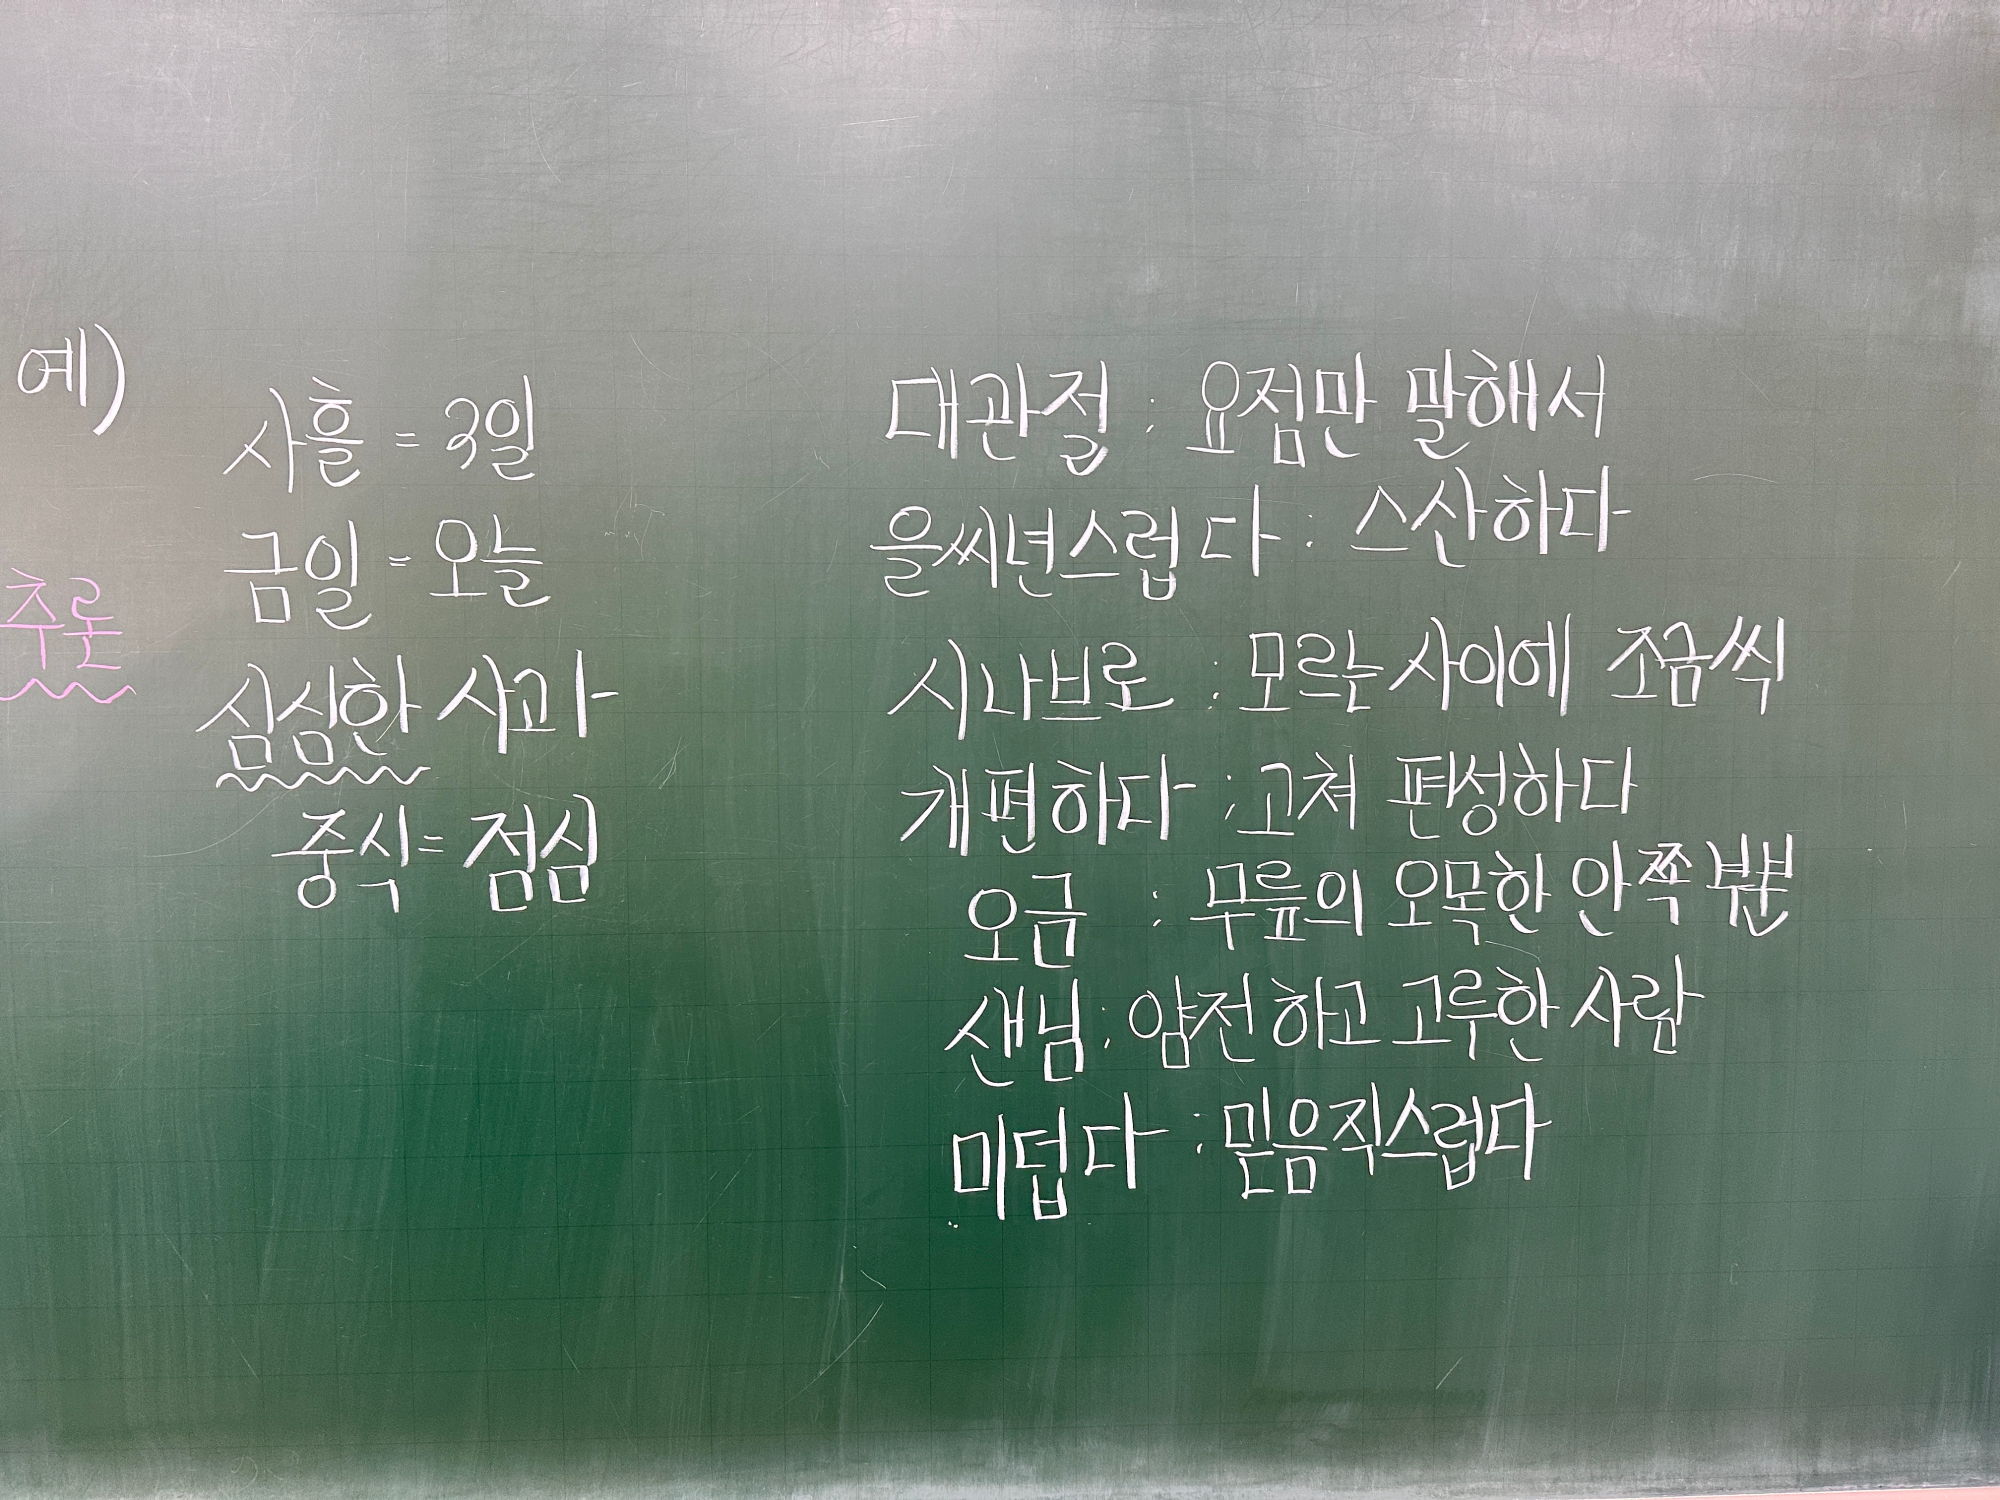 예)
추론
사흘 = 3일
금일 = 오늘
심심한 사과
중식 = 점심
대관절 : 요점만 말해서
을씨년스럽다 : 스산하다
시나브로 : 모르는 사이에 조금씩
개편하다 : 고쳐 편성하다
오금 : 무릎의 오목한 안쪽 부분
샌님 : 얌전하고 고루한 사람
미덥다 : 믿음직스럽다